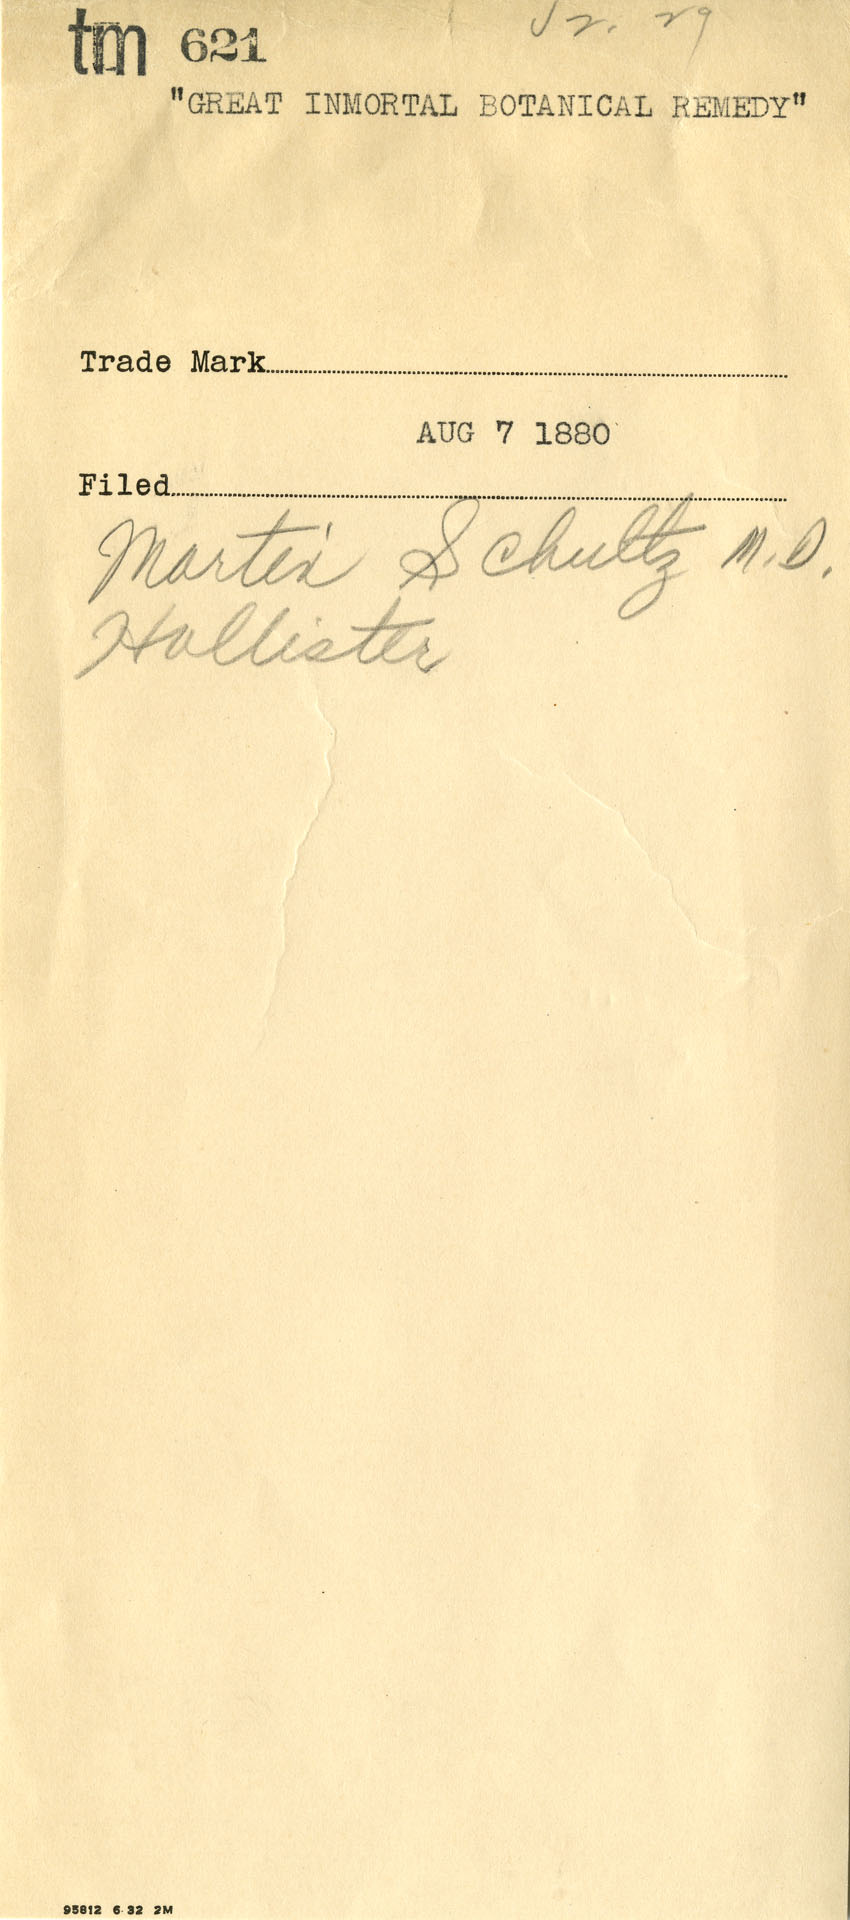 tm 621
"GREAT INMORTAL BOTANICAL REMEDY"
Trade Mark
AUG 7 1880
Filed
Martin Schultz M.D.
Hollister
95812 6-32 2M